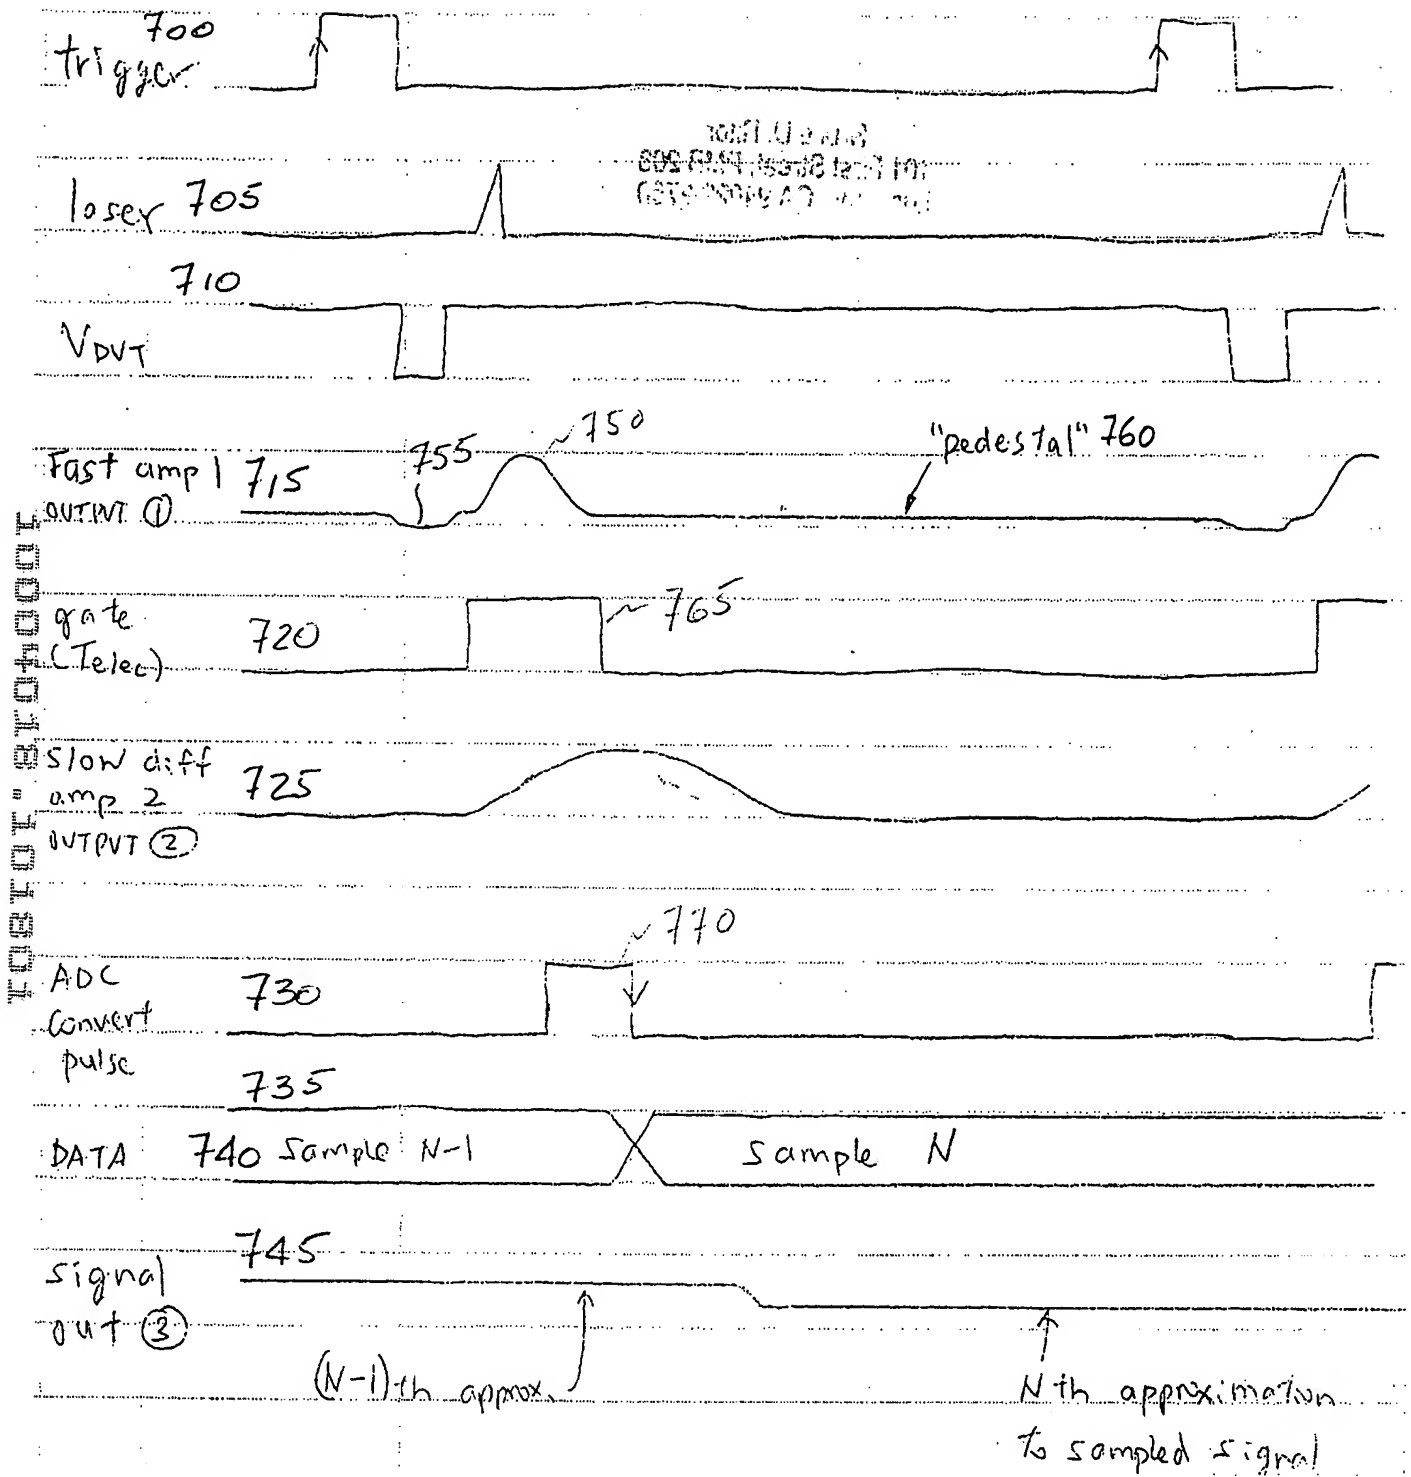 700
trigger
laser 705
710
VDVT
750
"pedestal" 760
755
Fast amp 1 715
OUTPUT ①
765
gate
(Telec)
720
slow diff
amp 2
725
OUTPUT ②
770
ADC
convert
pulse
730
735
DATA 740 Sample N-1
Sample N
745
signal
out ③
(N-1)th approx.
Nth approximation
to sampled signal